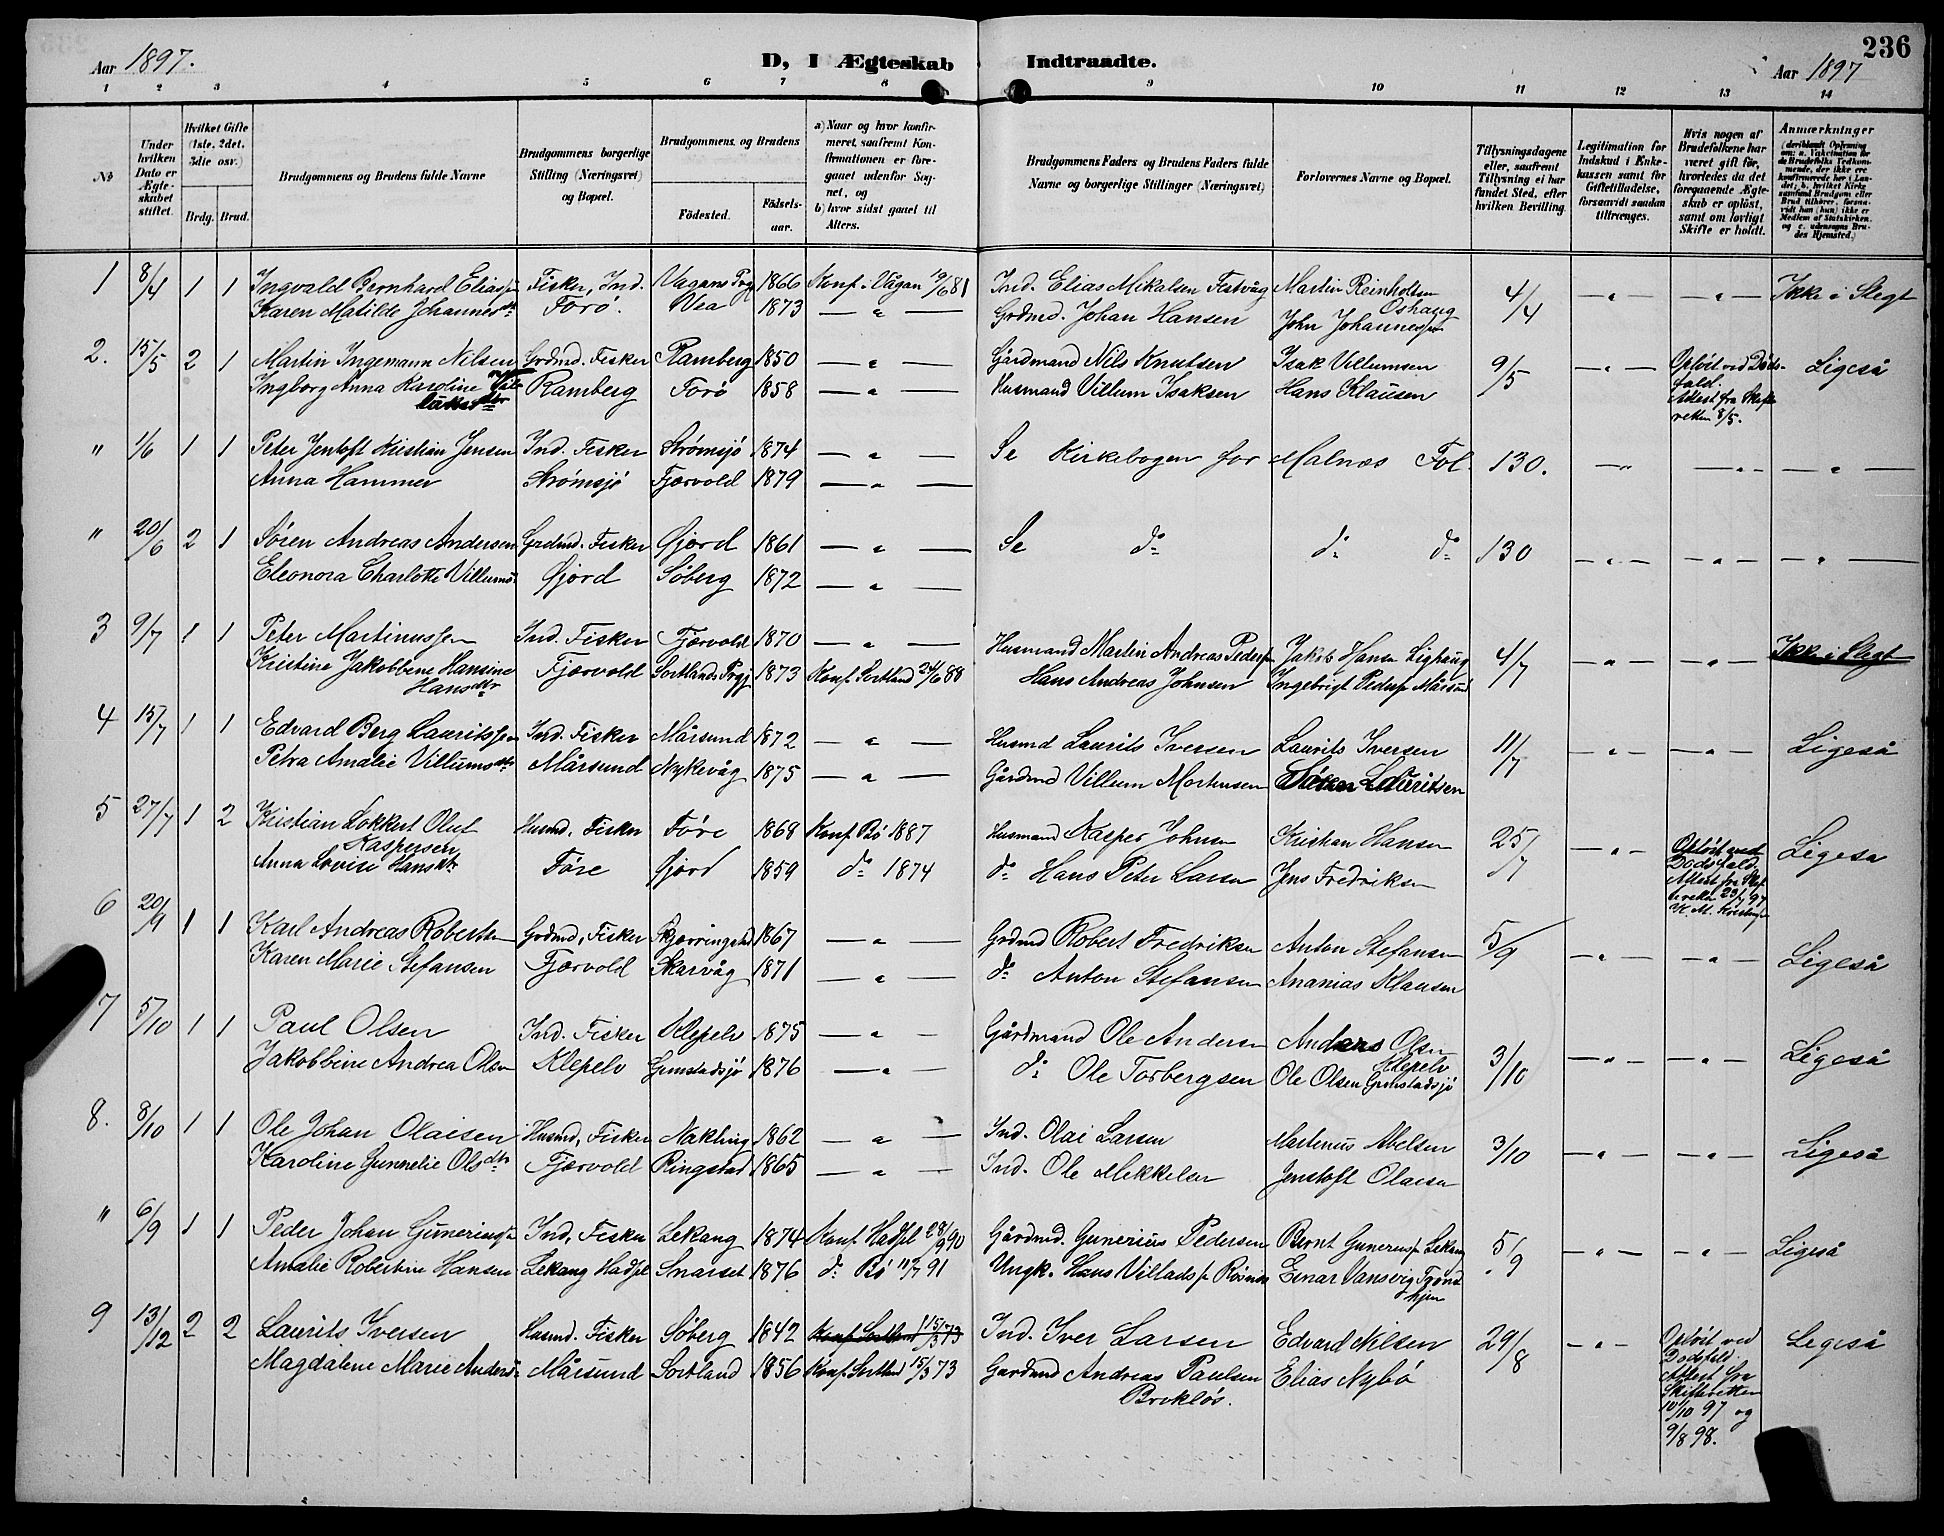 236
Aar 1897.
D, I Ægteskab Indtraadte.
Aar 1897
1 2 3 4 5 6 7 8 9 10 11 12 13 14
№
Under hvilken Dato er Ægteskabet stiftet.
Hvilket Gifte (1ste, 2det, 3die osv.)
Brdg. Brud.
Brudgommens og Brudens fulde Navne
Brudgommens borgerlige Stilling (Næringsvei) og Bopæl.
Brudgommens og Brudens
Födested. Födselsaar.
a) Naar og hvor konfirmeret, saafremt Konfirmationen er foregaaet udenfor Sognet, og
b) hvor sidst gaaet til Alters.
Brudgommens Faders og Brudens Faders fulde Navne og borgerlige Stillinger (Næringsvei)
Forlovernes Navne og Bopæl.
Tillysningsdagene eller, saafremt Tillysning ei har fundet Sted, efter hvilken Bevilling.
Legitimation for Indskud i Enkekassen samt for Giftetilladelse, forsaavidt saadan tiltrænges.
Hvis nogen af Brudefolkene har været gift för, hvorledes da det foregaaende Ægteskab er oplöst, samt om lovligt Skifte er holdt.
Anmærkninger
1 8/4 1 1 Ingvald Bernhard Eliasen Fisker, Ind. Vagans Prgj 1866 Konf. i Vågan 19/6 81 Ind. Elias Mikalsen Festvåg Martin Reinholtsen Oshaug 4/4 — " — — " — Ikke i Slegt
Karen Matilde Johannesdtr Forö. Vea 1873 — " — Grdmd. Johan Hansen John Johannesen
2. 15/5 2 1 Martin Ingemann Nilsen Grdmd. Fisker Ramberg 1850 — " — Gårdmand Nils Knutsen Isak Villumsen 9/5 — " — Oplöst ved Dödsfald. Attest fra Skifteretten 8/5. Ligeså
Ingborg Anna Karoline Ramberg Forö 1858 — " — Husmand Villum Isaksen Hans Klausen
" 1/6 1 1 Peter Jentoft Kristian Jensen Ind. Fisker Strömsjö 1874 — " — Se Kirkebogen for Malnæs Fol. 130. — " — — " — — " —
Anna Hammer Strömsjö Fjærvold 1879 — " —
" 20/6 2 1 Sören Andreas Andersen Grdmd. Fisker Gjörd 1861 — " — Se do do do 130 — " — — " — — " —
Eleonora Charlotte Villums. Gjörd Söberg 1872 — " —
3 9/7 1 1 Peter Martinussen Ind. Fisker Fjærvold 1870 — " — Husmand Martin Andreas Pedersen Jakob Hansen Lighaug 4/7 — " — — " — Ikke i Slegt
Kristine Jakobbene Hansine Hansdtr Fjærvold Sortlands Prgj 1873 Konf. Sortland 24/6 88 Hans Andreas Johnsen Ingebrigt Peders. Mårsund
4 15/7 1 1 Edvard Berg Lauritssen Ind. Fisker Mårsund 1872 — " — Husmd Laurits Iversen Laurits Iversen 11/7 — " — — " — Ligeså
Petra Amalie Villumsdtr Mårsund Nykevåg 1875 — " — Gårdmd Villum Mortensen Lauritsen
5 27/7 1 2 Kristian Lokkert Oluf Kaspersen Husmd. Fisker Före 1868 Konf. Bö 1887 Husmand Kasper Johnsen Kristian Hansen 25/7 — " — Oplöst ved Dödsfald. Attest fra Skifteretten Ligeså
Anna Lovise Hansdtr Före Gjörd 1859 do 1874 do Hans Peter Larsen Jens Fredriksen
6 20/9 1 1 Karl Andreas Robertsen Grdmd. Fisker Skjærringstad 1867 — " — Grdmd Robert Fredriksen Anton Stefansen 5/9 — " — — " — Ligeså
Karen Marie Stefansen Fjærvold Skarvåg 1871 — " — do Anton Stefansen Ananias Klausen
7 5/10 1 1 Paul Olsen Ind. Fisker Klepelv 1875 — " — Gårdmand Ole Andersen Anders Olsen Klepelv 3/10 — " — — " — Ligeså
Jakobbine Andrea Olsen Klepelv Grimstadsjö 1876 — " — do Ole Torbergsen Ole Olsen Grimstadsjö
8. 8/10 1 1 Ole Johan Olaisen Husmd, Fisker Nakling 1862 — " — Ind. Olai Larsen Martenius Abelsen 3/10 — " — — " — Ligeså
Karoline Gunnelie Olsdtr Fjærvold Ringstad 1865 — " — Ind. Ole Mekkelsen Jenstoft Olaisen
" 6/9 1 1 Peder Johan Guneriussen Ind. Fisker Lekang 1874 Konf Hadsel 28/9 90 Gårdmd. Gunerius Pedersen Bernt Guneriuss. Lekang 5/9 — " — — " — Ligeså
Amalie Robertine Hansen Lekang Hadsel Snarset 1876 do Bö 11/7 91 Ungk. Hans Villads. Rösnes Einar Vansvig Trondhjem
9 13/12 2 2 Laurits Iversen Husmd. Fisker Söberg 1842 Konf Sortland 15/3 73 Ind. Iver Larsen Edvard Nilsen 29/8 — " — Oplöst ved Dödsfald. Attest fra Skifteretten 10/10 97 og 9/8 98. Ligeså
Magdalene Marie Anders. Mårsund Sortland 1856 Konf. Sortland 15/3 73 Gardmd Andreas Paulsen Breklös. Elias Nybö